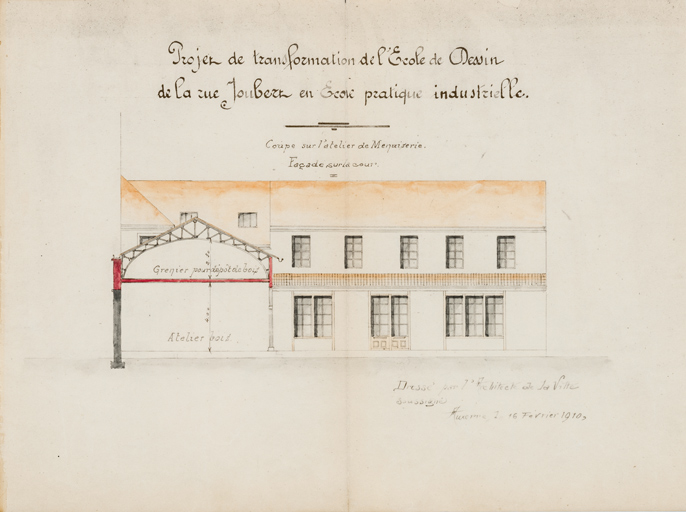 Projet de transformation de l'École de Dessin
de la rue Joubert en École pratique industrielle.
Coupe sur l'atelier de Menuiserie.
Façade sur la cour.
Grenier pour dépôt de bois
Atelier bois
Dressé par l'Architecte de la Ville
soussigné
Auxerre, le 16 Février 1910